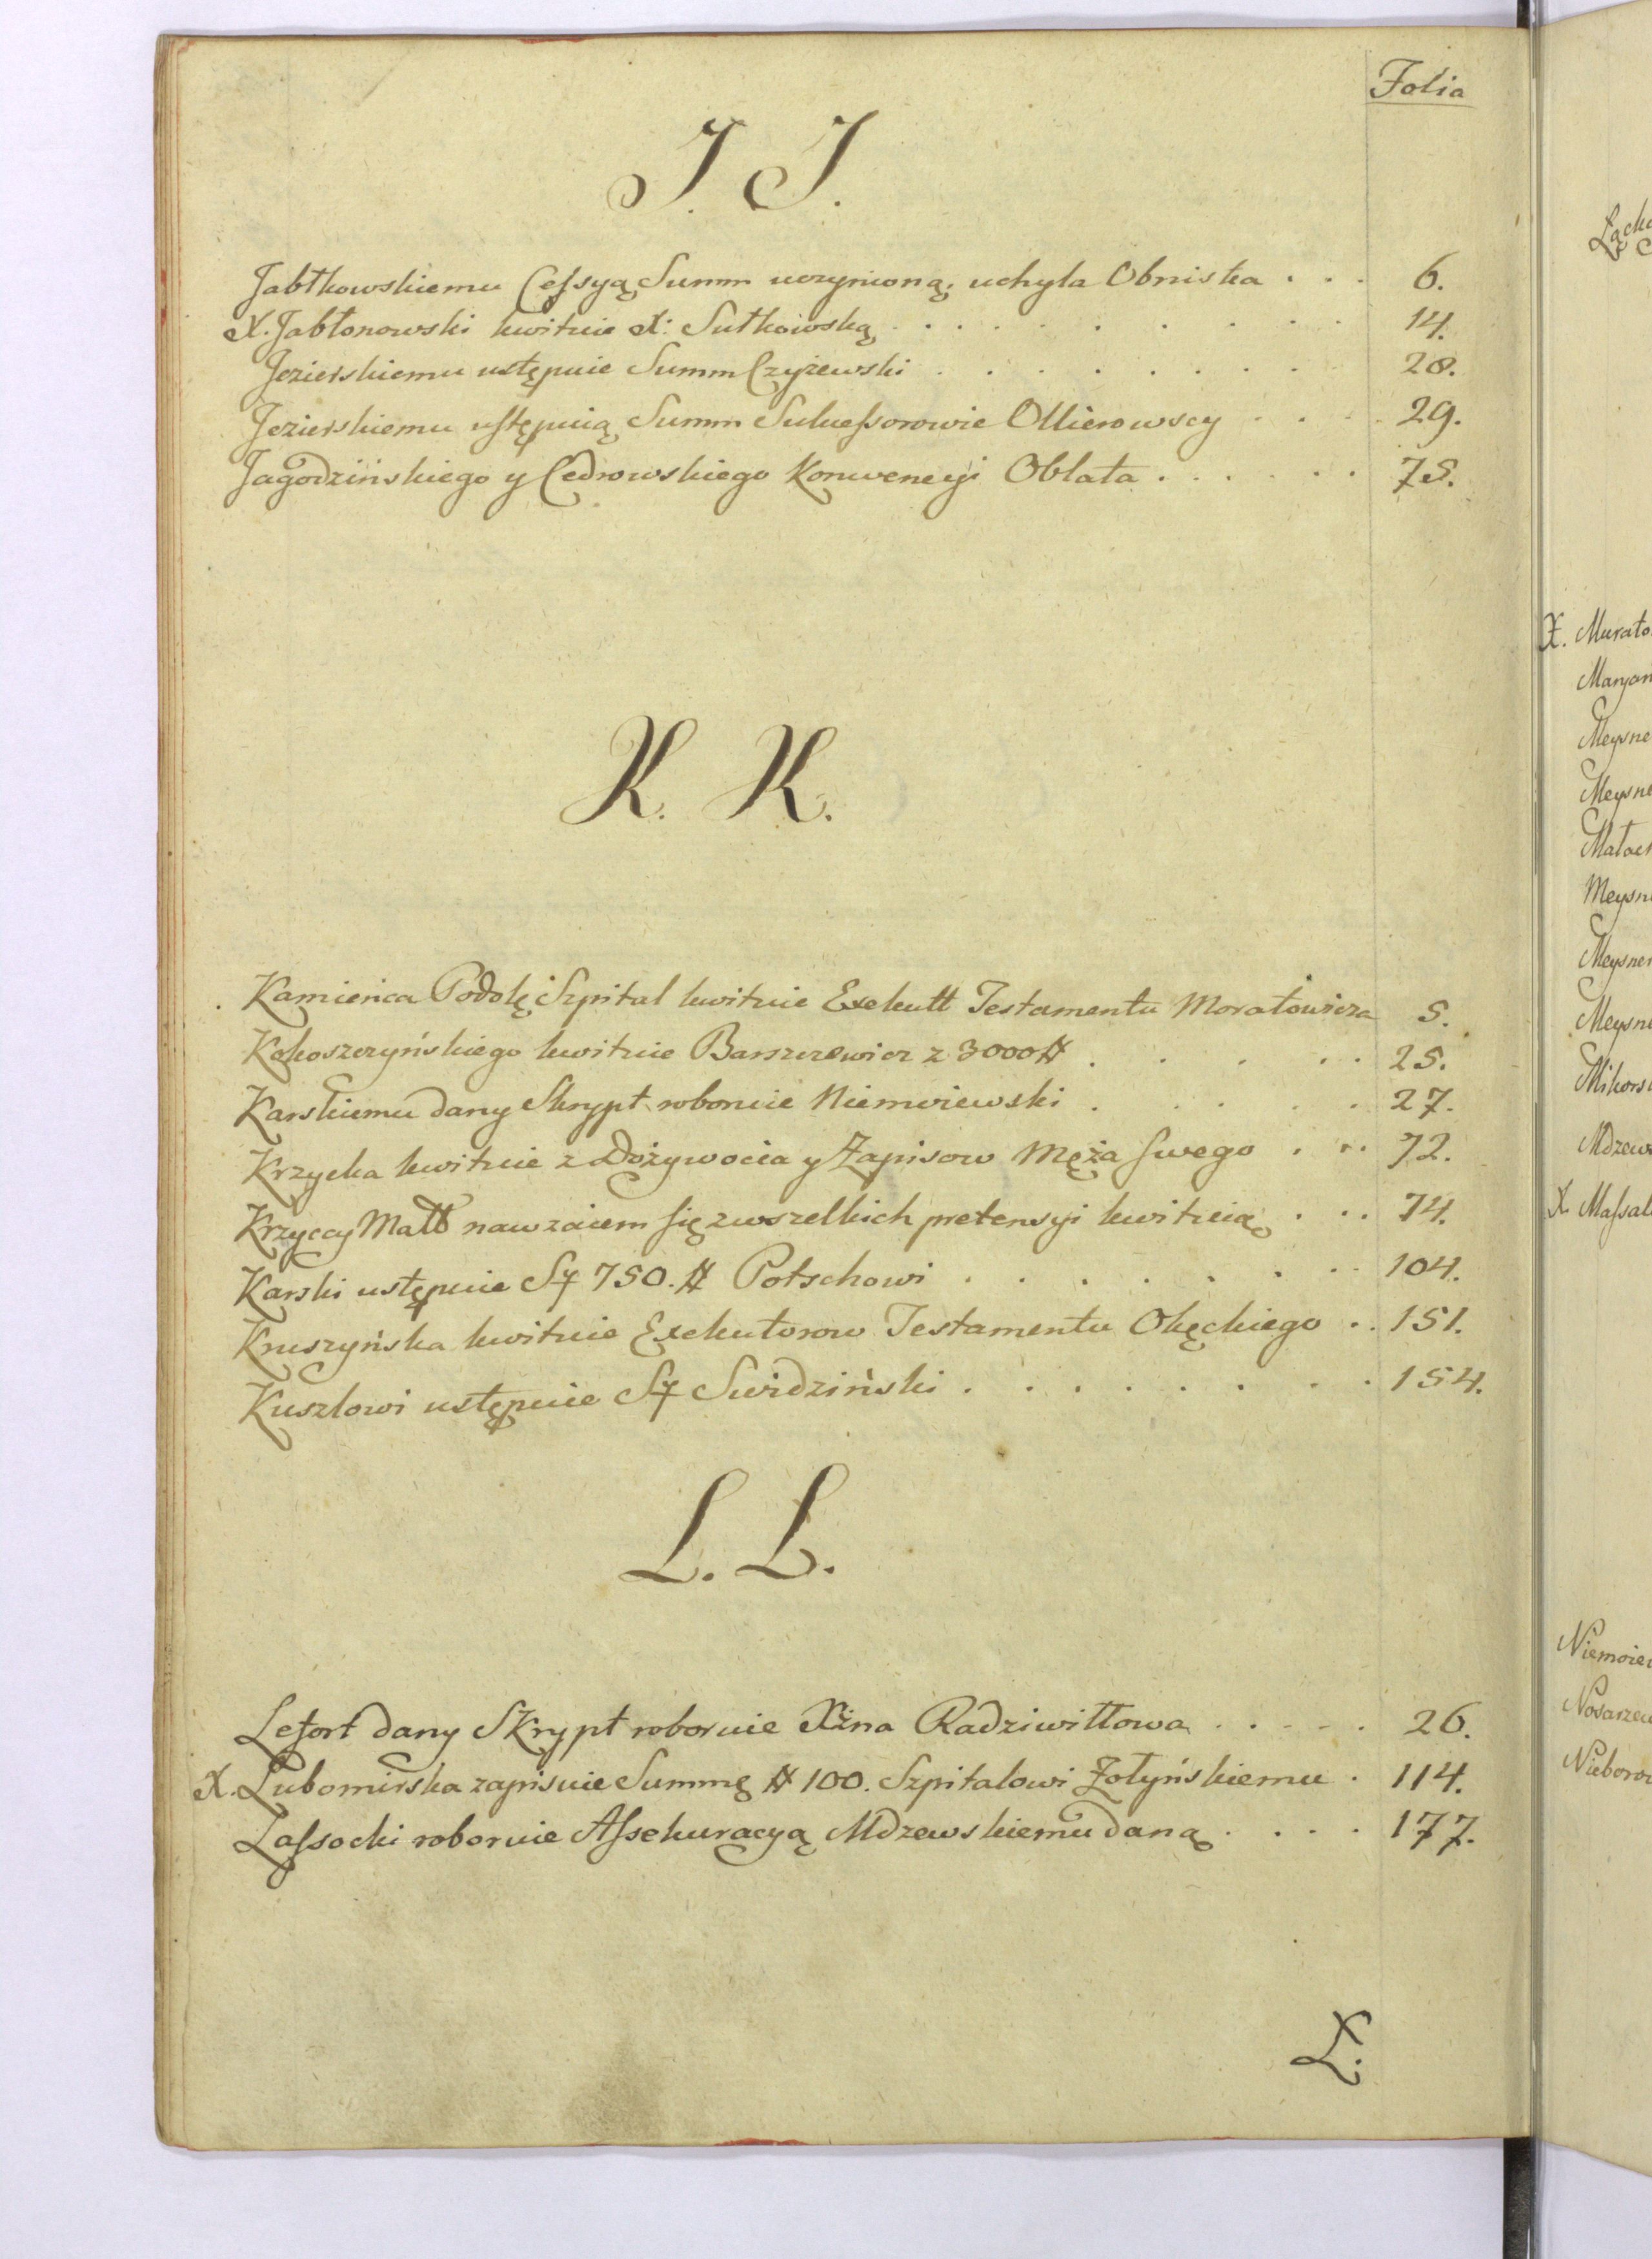 Folia
J J.
Jabłkowskiemu Cessyą Summ uczynioną, uchyla Obniska . . . 6.
X. Jabłonowski kwituie X: Sułkowską . . . . . . . . . 14.
Jezierskiemu ustępuie Summ Czyżewski . . . . . . . 28.
Jezierskiemu ustępuią Summ Sukcessorowie Ollierowscy . . . 29.
Jagodzińskiego y Cedrowskiego Konwencyi Oblata . . . . . 75.
K. K.
Kamieńca Podolę Szpital kwituie Exekutt Testamentu Moratowicza 5.
Kokoszczyńskiego kwituie Barszczewicz z 3000 # . . . . . 25.
Karskiemu dany Skrypt roboruie Niemoiewski . . . . . 27.
Krzycka kwituie z Dożywocia y Zapisow Męża swego . . . 72.
Krzyccy Małż nawzaiem się z wszelkich pretensyi kwituią . . . 74.
Karski ustępuie Sę 750. # Potschowi . . . . . . . . 104.
Kruszyńska kwituie Exekutorow Testamentu Okęckiego . . 151.
Kuszlowi ustępuie Sę Swidziński . . . . . . . . 154.
L. L.
Lefort dany Skrypt roboruie Xżna Radziwiłłowa . . . . . 26.
X. Lubomirska zapisuie Summę # 100. Szpitalowi Żołyńskiemu . 114.
Lassocki roboruie Assekuracyą Mdzewskiemu daną . . . . 177.
Ł.
X. Murato
Maryan
Meysne
Meysne
Małach
Meysne
Meysner
Meysne
Mikors
Mdzews
X. Massal
Niemoiew
Nosarzew
Nieboro